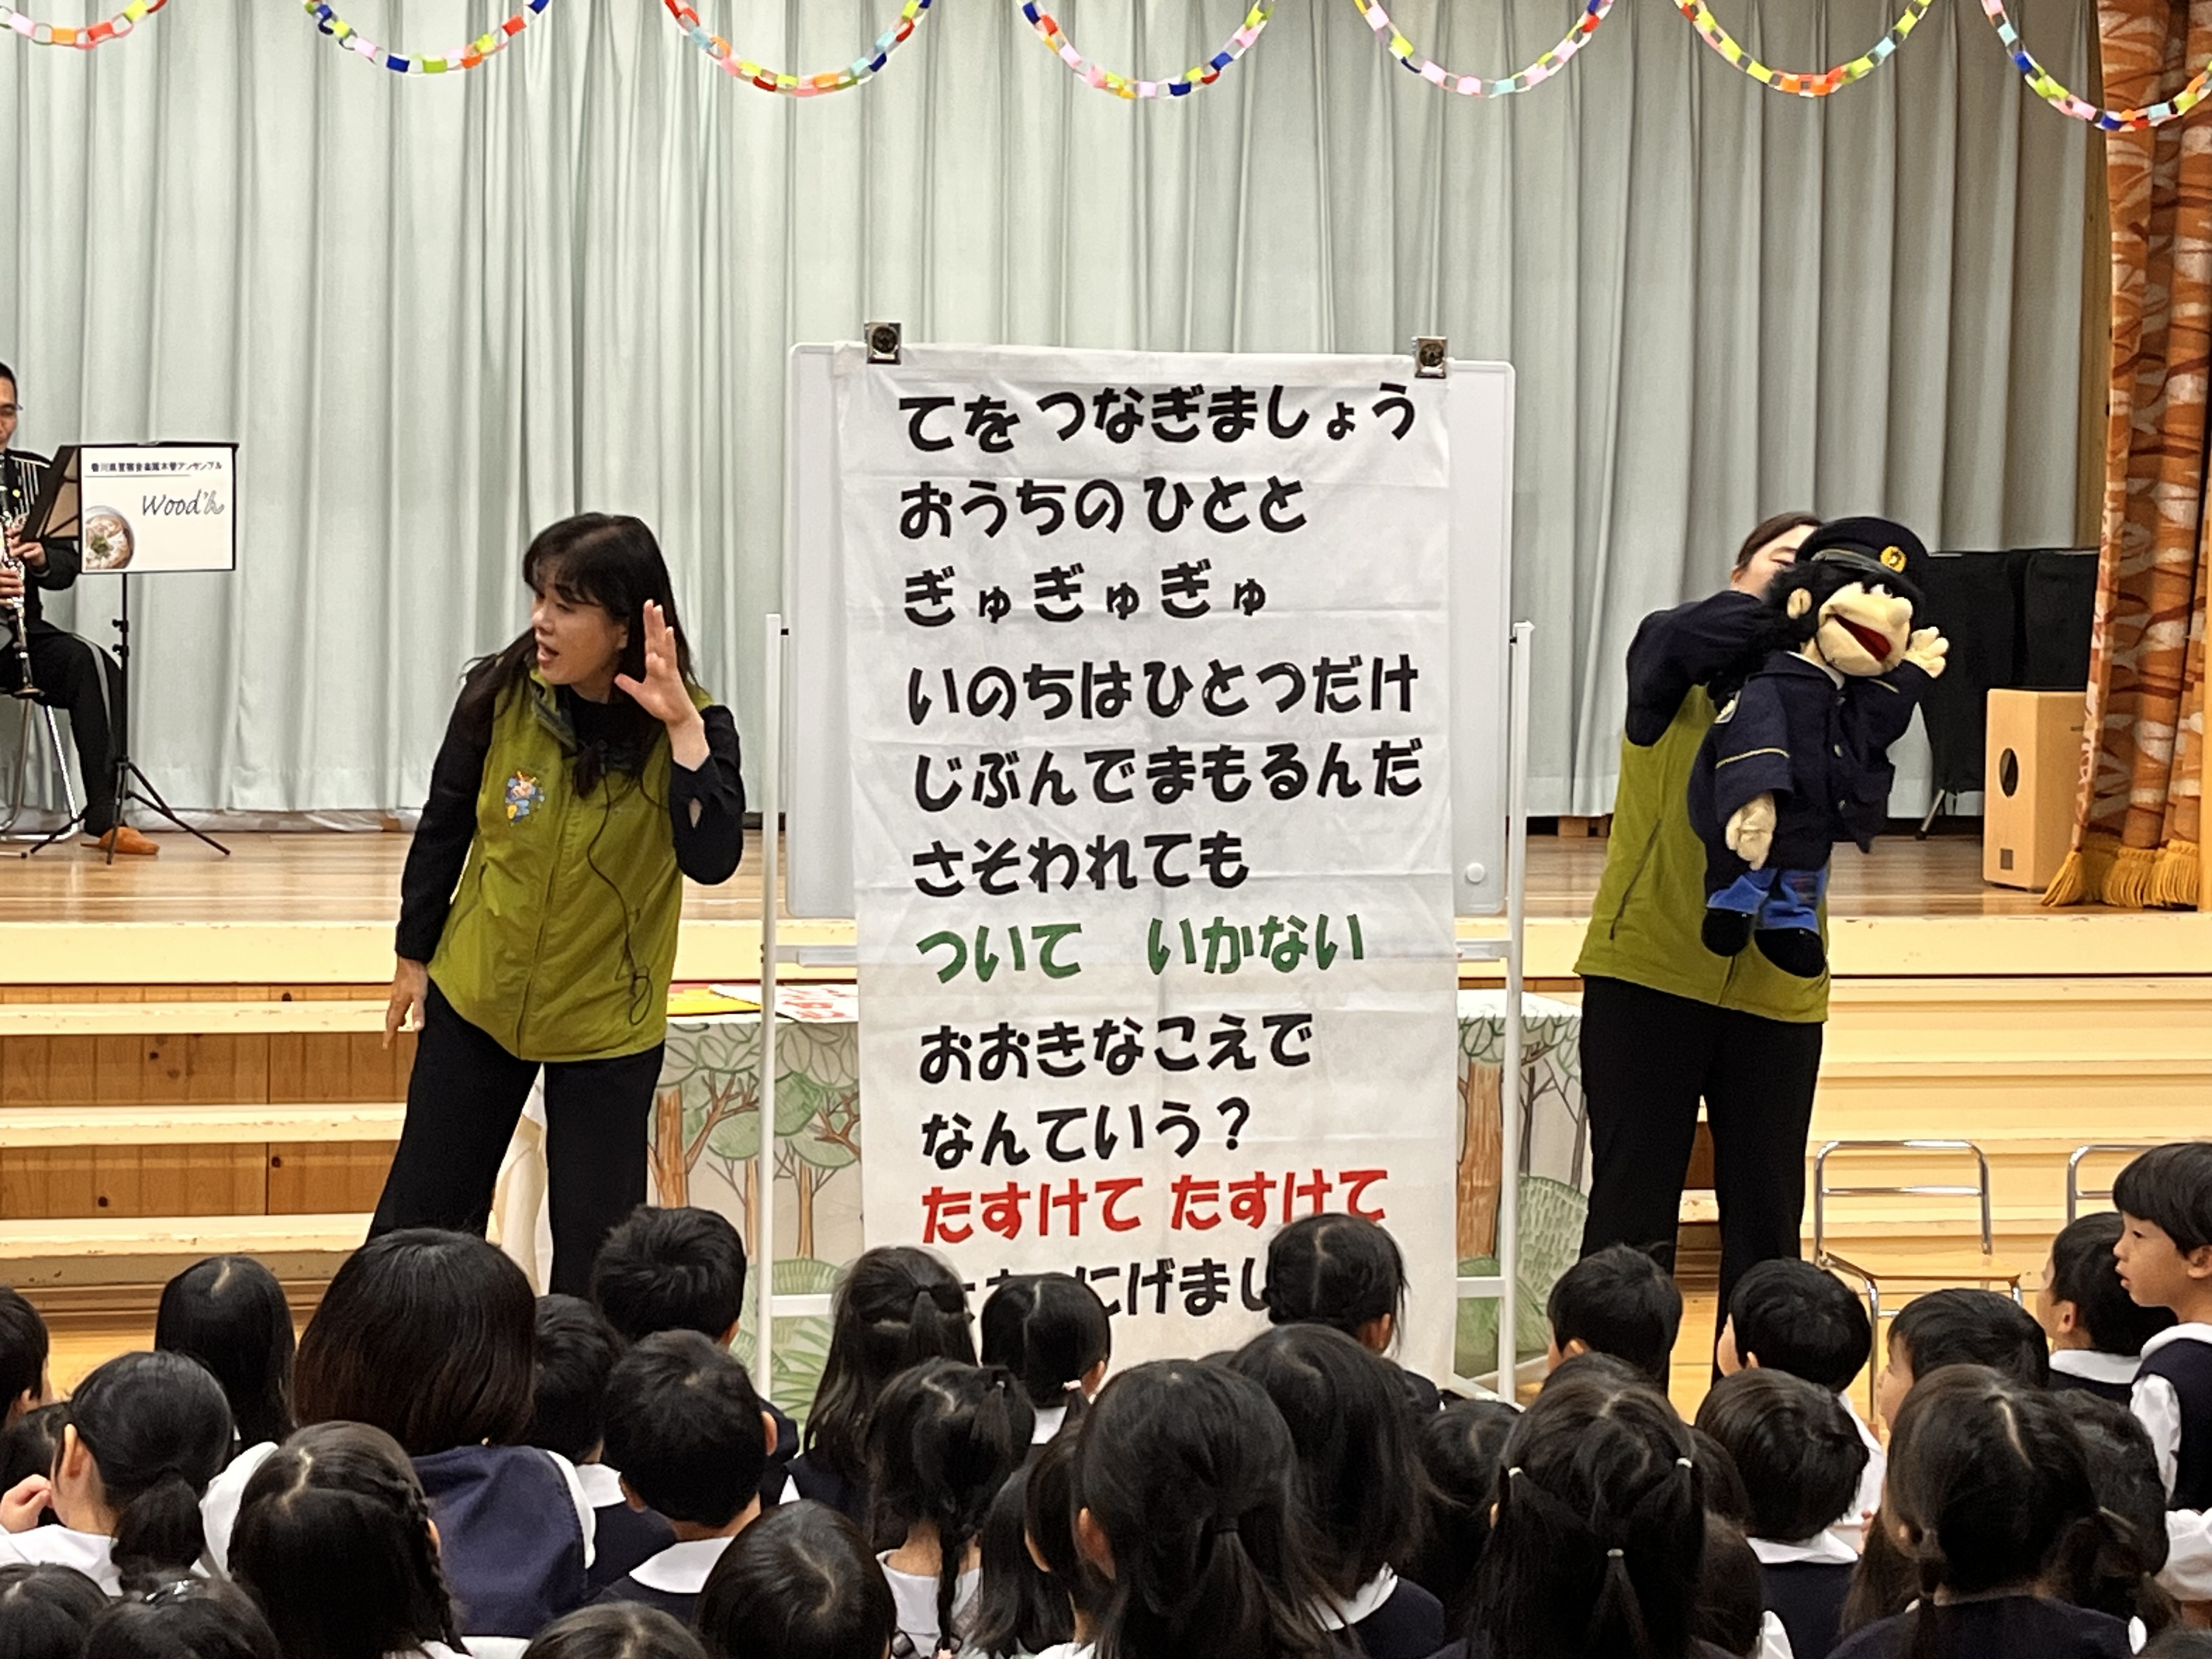 香川県警察音楽隊木管アンサンブル
Wood'ん
てを つなぎましょう
おうちの ひとと
ぎゅぎゅぎゅ
いのちはひとつだけ
じぶんでまもるんだ
さそわれても
ついて いかない
おおきなこえで
なんていう?
たすけて たすけて
にげまし